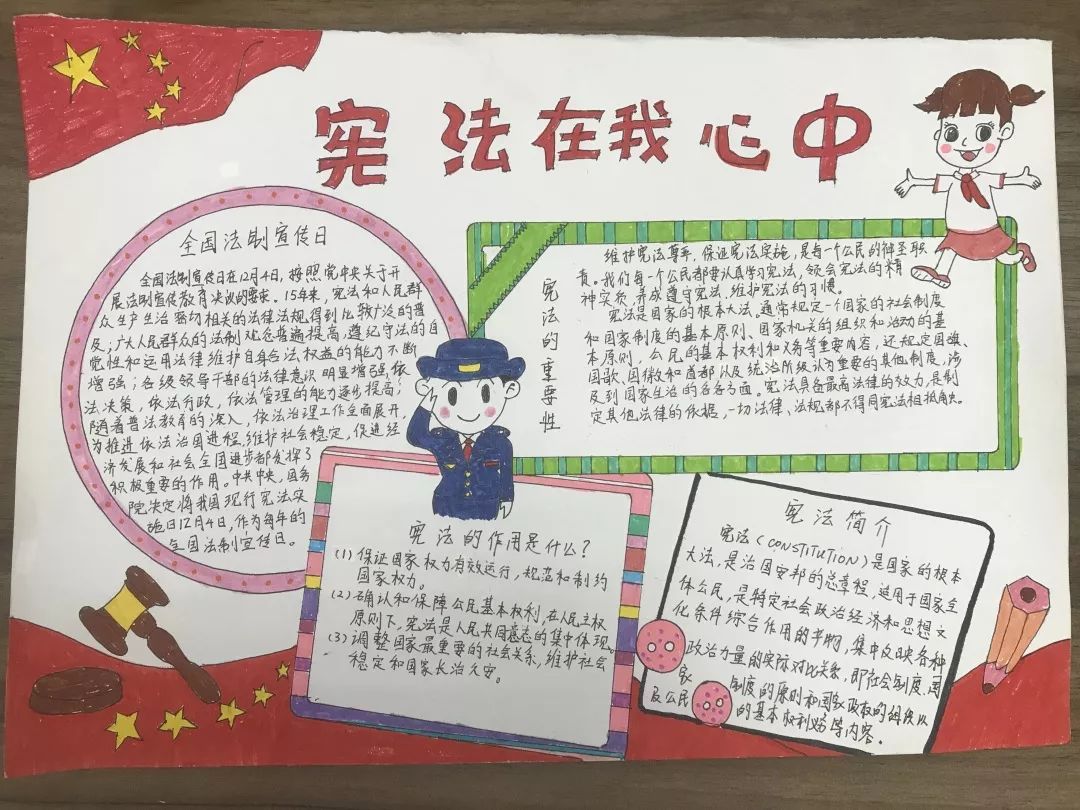 宪法在我心中
全国法制宣传日
全国法制宣传日在12月4日,按照党中央关于开
展法制宣传教育决议的要求。15年来,宪法和人民群
众生产生活密切相关的法律法规得到比较广泛的普
及;广大人民群众的法制观念普遍提高,遵纪守法的自
觉性和运用法律维护自身合法权益的能力不断
增强;各级领导干部的法律意识明显增强,依
法决策,依法行政,依法管理的能力逐步提高;
随着普法教育的深入,依法治理工作全面展开,
为推进依法治国进程,维护社会稳定,促进经
济发展和社会全国进步都发挥了
积极重要的作用。中共中央、国务
院决定将我国现行宪法实
施日12月4日,作为每年的
全国法制宣传日。
宪法的重要性
维护宪法尊严,保证宪法实施,是每一个公民的神圣职
责。我们每一个公民都要认真学习宪法,领会宪法的精
神实质,养成遵守宪法、维护宪法的习惯。
宪法是国家的根本大法。通常规定一个国家的社会制度
和国家制度的基本原则、国家机关的组织和活动的基
本原则,公民的基本权利和义务等重要内容,还规定国旗、
国歌、国徽和首都以及统治阶级认为重要的其他制度,涉
及到国家生活的各各方面。宪法具备最高法律的效力,是制
定其他法律的依据,一切法律、法规都不得同宪法相抵触。
宪法的作用是什么?
(1)保证国家权力有效运行,规范和制约
国家权力。
(2)确认和保障公民基本权利,在人民主权
原则下,宪法是人民共同意志的集中体现。
(3)调整国家最重要的社会关系,维护社会
稳定和国家长治久安。
宪法简介
宪法(CONSTITUTION)是国家的根本
大法,是治国安邦的总章程,适用于国家全
体公民,是特定社会政治经济和思想文
化条件综合作用的产物,集中反映各种
政治力量的实际对比关系,即社会制度、国
家制度的原则和国家政权的组织以
及公民的基本权利义务等内容。